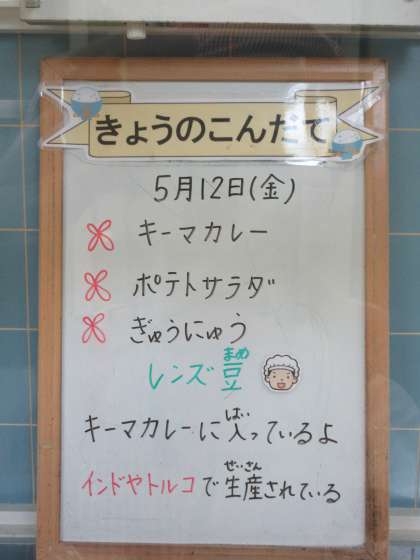 きょうのこんだて
5月12日(金)
キーマカレー
ポテトサラダ
ぎゅうにゅう
まめ
レンズ豆
はい
キーマカレーに入っているよ
せいさん
インドやトルコで生産されている